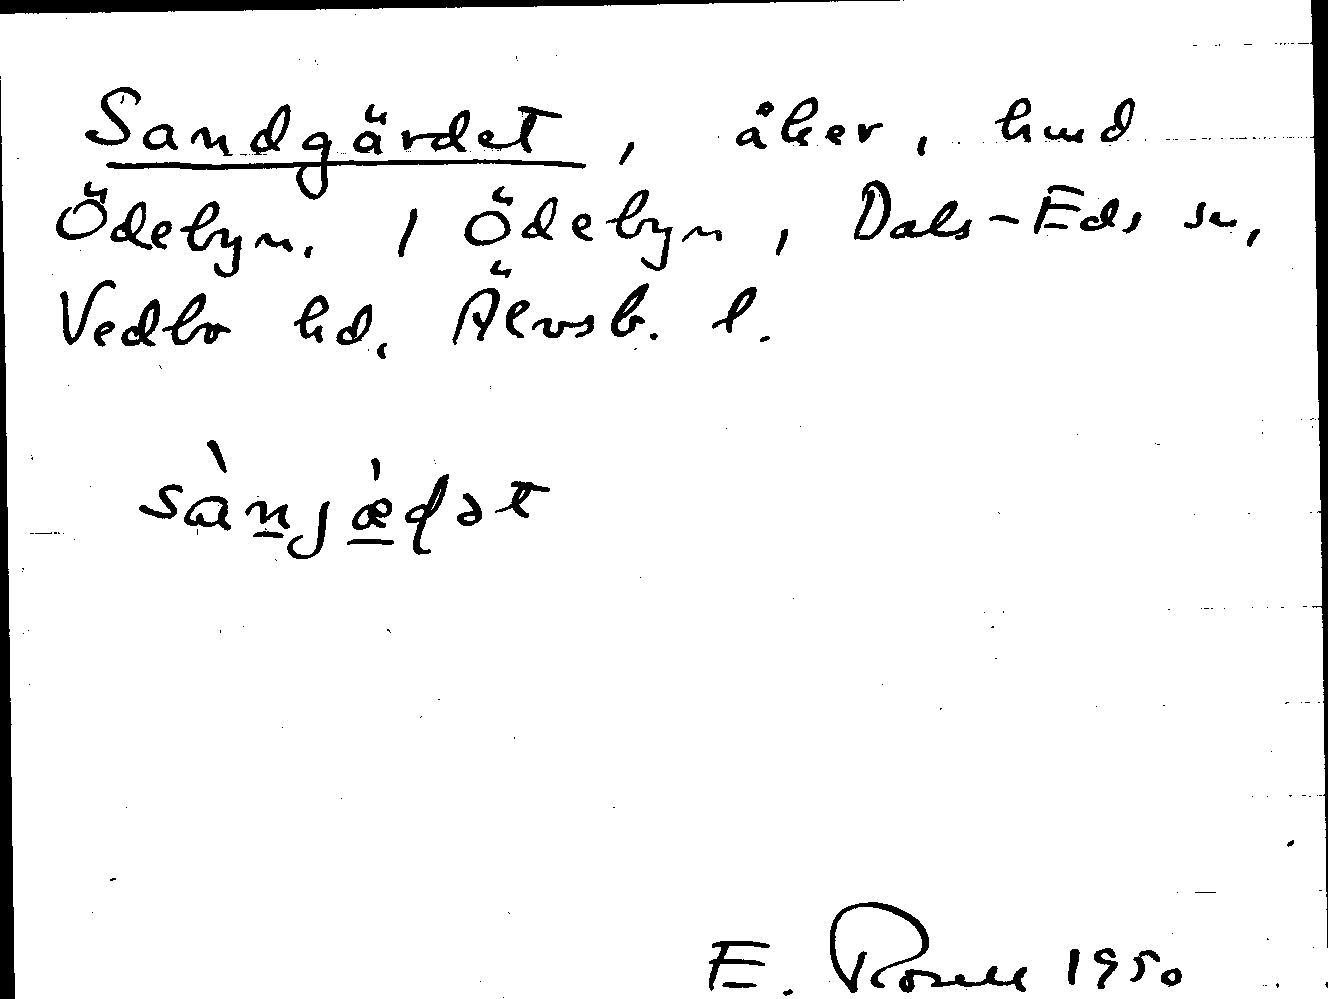 Sandgärdet, åker, hmd
Ödebyn. 1 Ödebyn, Dals-Eds sn,
Vedbo hd. Älvsb. l.
sànjæ̀ɖət
E. Rosell 1950